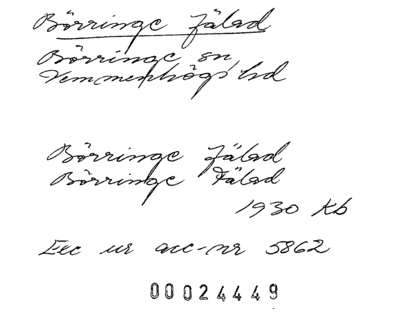 Börringe Fälad
Börringe sn,
Vemmenhögs hd
Börringe Fälad
Börringe Fälad
1930 Kb
Exc ur acc-nr 5862
00024449